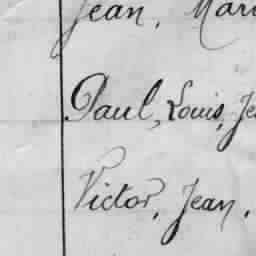 Jean, Mari
Paul, Louis, Je
Victor, Jean,